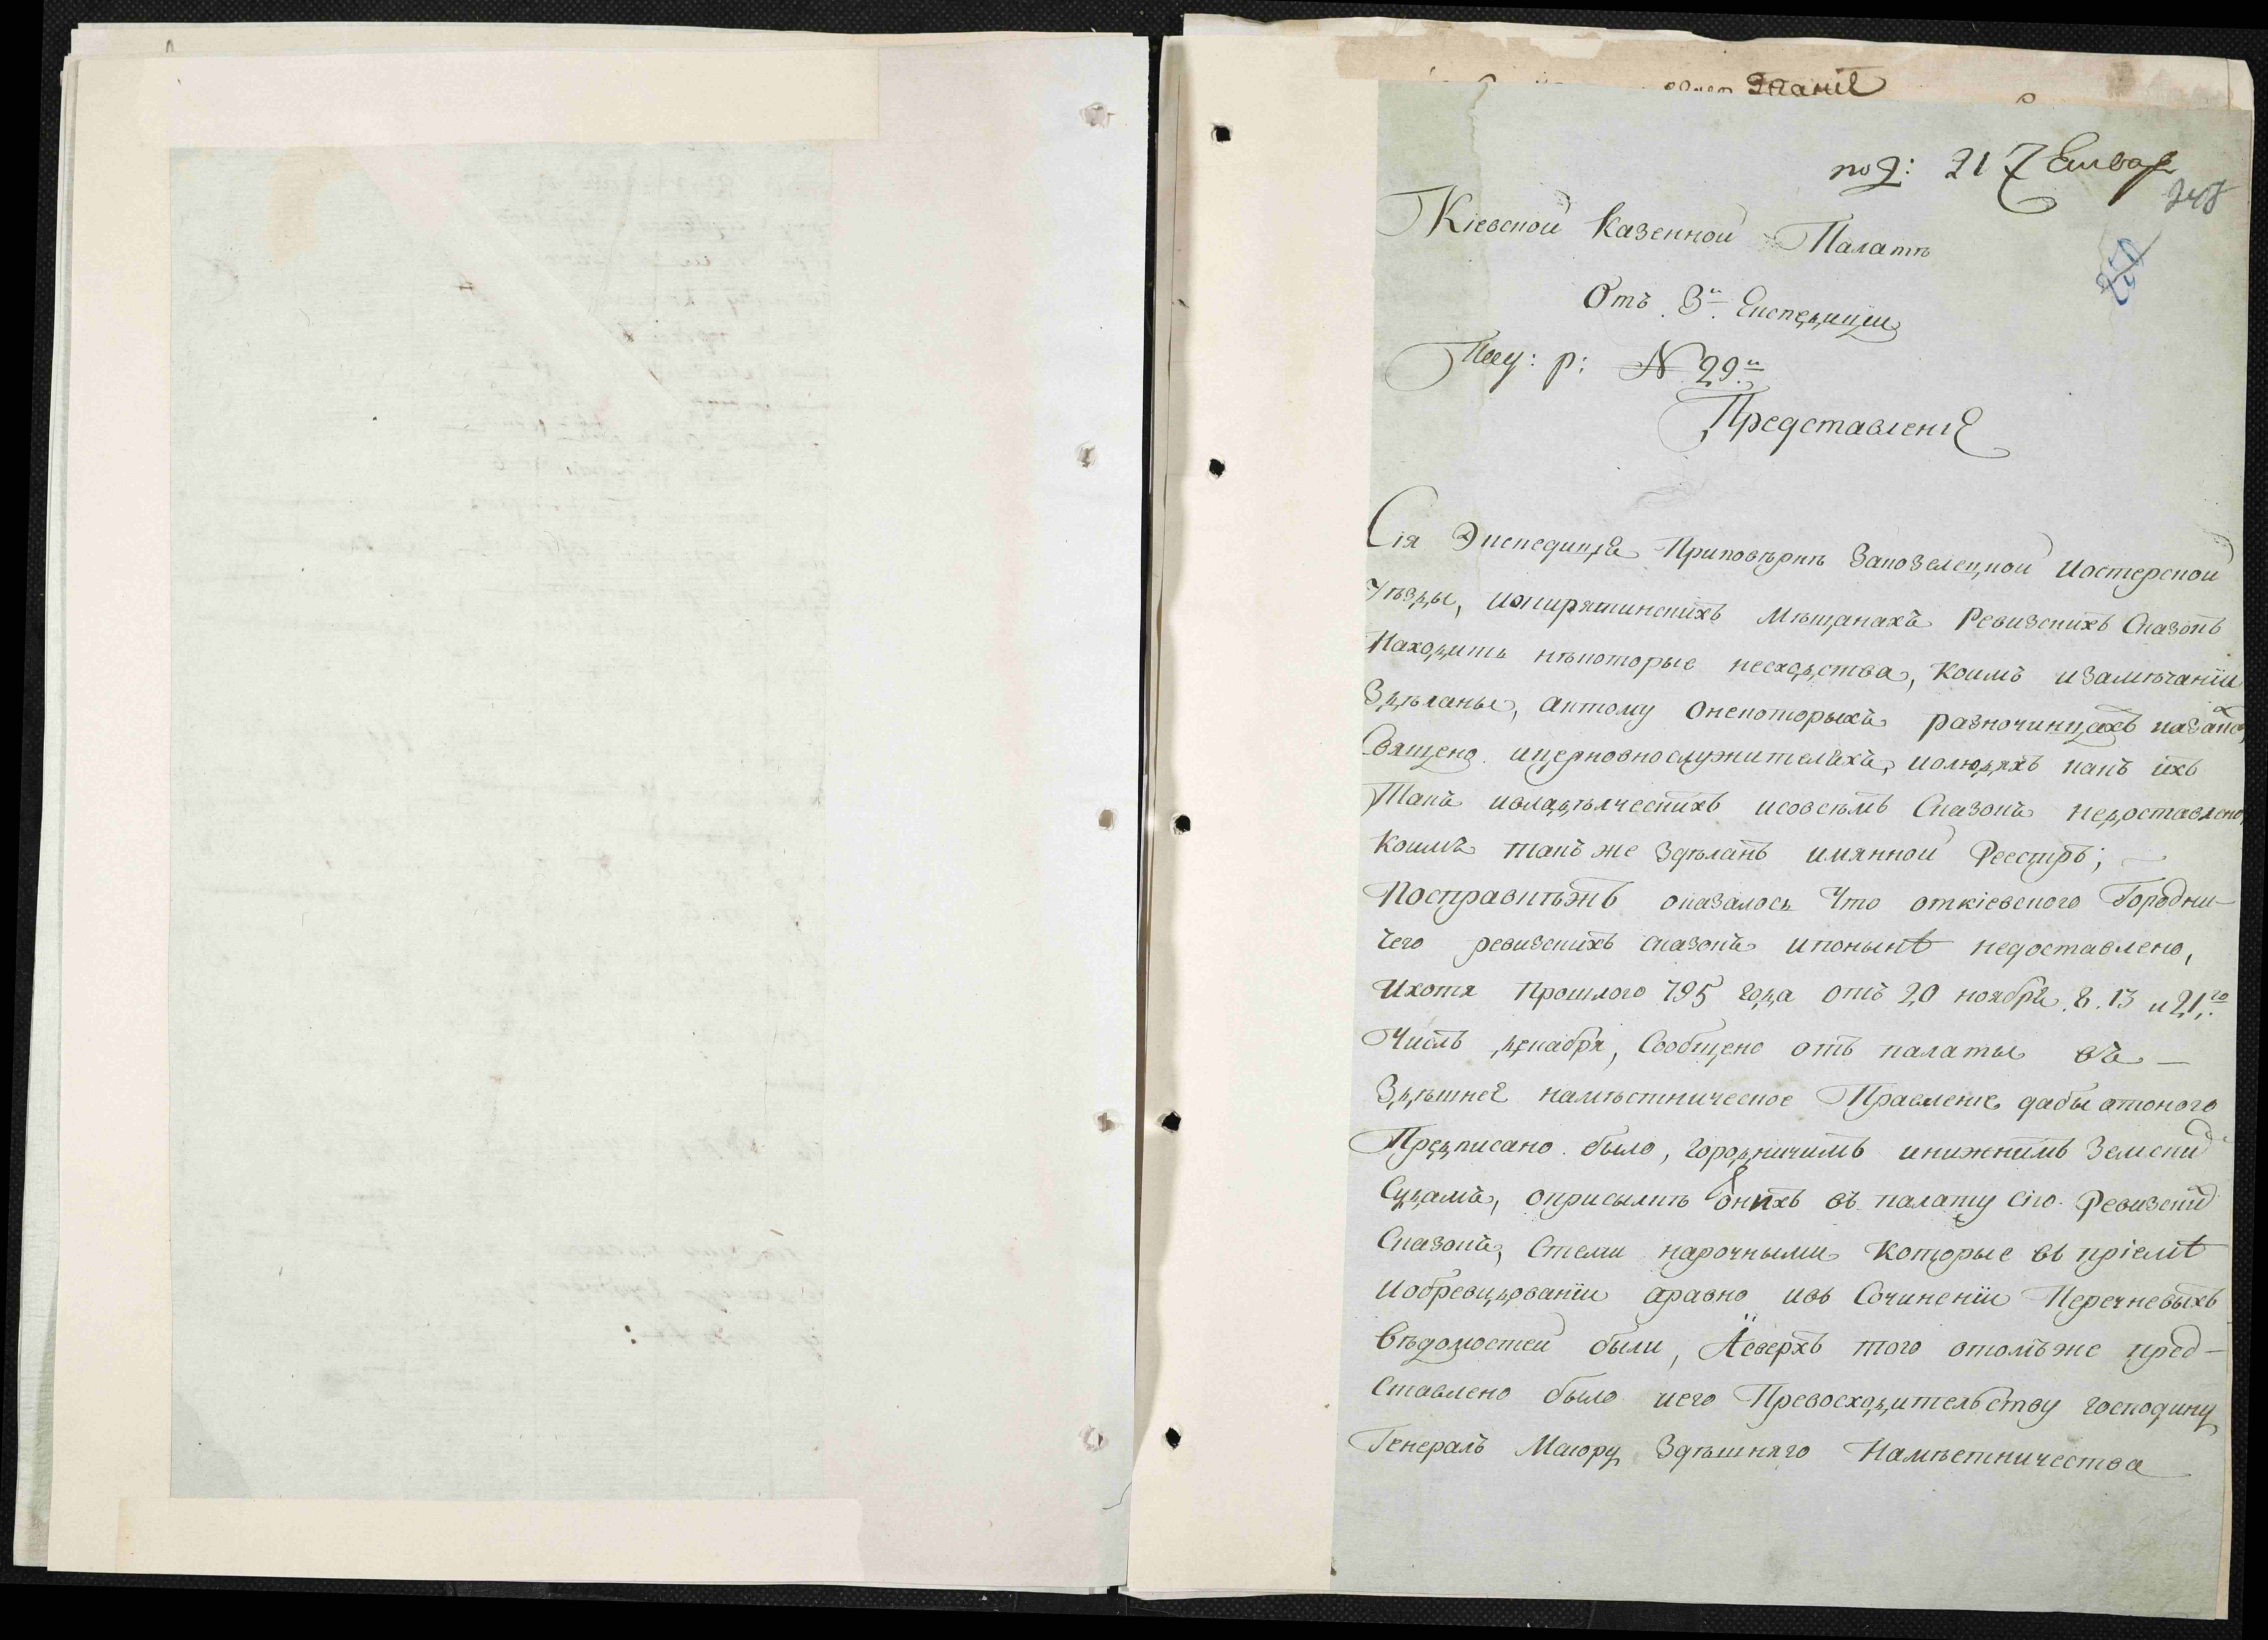 под: 217 Енвар
248
Кіевской Казенной Палатѣ
Отъ 3й Експедиціи
По еу: р: № 29й
Представленіе
Сія Экспедиція При повѣркѣ За козелецкой и остерской
Уѣзды, и о пирятинскихъ мѣщанахъ Ревизскихъ Сказокъ
Находитъ нѣкоторые несходства, коимъ и замѣчаніи
Здѣланы, а потому о некоторыхъ разночинцахъ
Священо и церковнослужителяхъ, и о людяхъ какъ ихъ
Такъ и владѣлческихъ и совсѣмъ Сказокъ недоставлено
коимъ такъ же здѣланъ имянной Реестръ;
По справкѣ жъ оказалось Что от кіевского Городни-
чего ревизскихъ сказокъ и понынѣ недоставлено,
И хотя Прошлого 795 года отъ 20 ноября, 8. 13 и 21го
Числъ декабря, Сообщено отъ палаты въ
Здѣшнее намѣстническое Правление дабы от оного
Предписано было, городничимъ и нижнимъ Земски
Судамъ, о присылкѣ оныхъ въ палату сію Ревизски
Сказокъ, С теми нарочными которые въ пріемѣ
И обревидованіи а равно и въ Сочиненіи Перечневыхъ
Вѣдомостей были, А сверхъ того о томъ же пред-
ставлено было и его Превосходительству господину
Генералъ Маіору Здѣшняго Намѣстничества